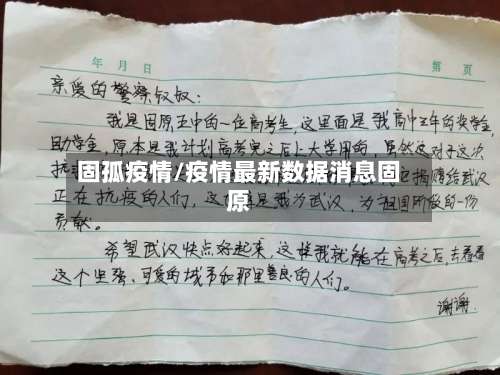 年 月 日 第 页
亲爱的警察叔叔：
我是固原五中的一位高考生，这里面是我高中三年的奖学金，
助学金，原本是我计划高考完之后上大学用的，虽然这对于这次
抗
固孤疫情/疫情最新数据消息固
原
捐赠给武汉
正在抗疫的人们，这 是我为武汉，为祖国所做的一份
贡献。
希望武汉快点好起来，这样我就能在高考之后，去看看
这个坚强、可爱的城市和那里善良的人们。
谢谢.